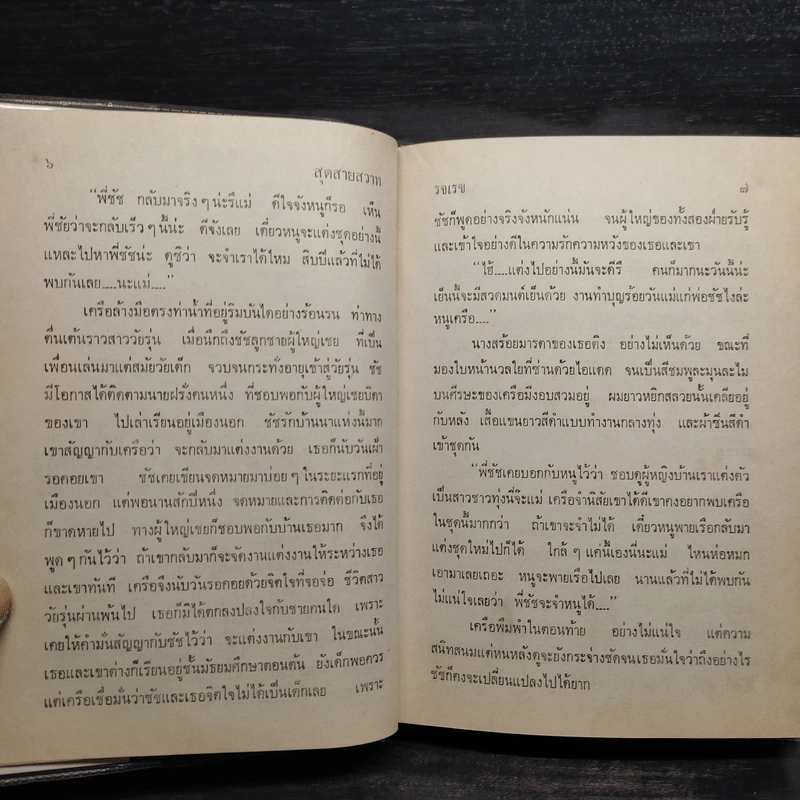 ๖
สุดสายสวาท
“พี่ชัช กลับมาจริง ๆ น่ะรึแม่ ดีใจจังหนูก็รอ เห็น
พี่ชัยว่าจะกลับเร็ว ๆ นี้น่ะ ดีจังเลย เดี๋ยวหนูจะแต่งชุดอย่างนี้
แหละไปหาพี่ชัชน่ะ ดูซิว่า จะจำเราได้ไหม สิบปีแล้วที่ไม่ได้
พบกันเลย....นะแม่....”
เครือล้างมือตรงท่าน้ำที่อยู่ริมบันไดอย่างร้อนรน ท่าทาง
ตื่นเต้นราวสาววัยรุ่น เมื่อนึกถึงชัชลูกชายผู้ใหญ่เชย ที่เป็น
เพื่อนเล่นมาแต่สมัยวัยเด็ก จวบจนกระทั่งอายุเข้าสู่วัยรุ่น ชัช
มีโอกาสได้ติดตามนายฝรั่งคนหนึ่ง ที่ชอบพอกับผู้ใหญ่เชยบิดา
ของเขา ไปเล่าเรียนอยู่เมืองนอก ชัชรักบ้านนาแห่งนี้มาก
เขาสัญญากับเครือว่า จะกลับมาแต่งงานด้วย เธอก็นับวันเฝ้า
รอคอยเขา ชัชเคยเขียนจดหมายมาบ่อย ๆ ในระยะแรกที่อยู่
เมืองนอก แต่พอนานสักปีหนึ่ง จดหมายและการติดต่อกับเธอ
ก็ขาดหายไป ทางผู้ใหญ่เชยก็ชอบพอกับบ้านเธอมาก จึงได้
พูด ๆ กันไว้ว่า ถ้าเขากลับมาก็จะจัดงานแต่งงานให้ระหว่างเธอ
และเขาทันที เครือจึงนับวันรอคอยด้วยจิตใจที่จอจ่อ ชีวิตสาว
วัยรุ่นผ่านพ้นไป เธอก็มิได้ตกลงปลงใจกับชายคนใด เพราะ
เคยให้คำมั่นสัญญากับชัชไว้ว่า จะแต่งงานกับเขา ในขณะนั้น
เธอและเขาต่างก็เรียนอยู่ชั้นมัธยมศึกษาตอนต้น ยังเด็กพอควร
แต่เครือเชื่อมั่นว่าชัชและเธอจิตใจไม่ได้เป็นเด็กเลย เพราะ
รจเรข
๗
ชัชก็พูดอย่างจริงจังหนักแน่น จนผู้ใหญ่ของทั้งสองฝ่ายรับรู้
และเข้าใจอย่างดีในความรักความหวังของเธอและเขา
“ไฮ้....แต่งไปอย่างนี้มันจะดีรึ คนก็มากนะวันนี้น่ะ
เย็นนี้จะมีสวดมนต์เย็นด้วย งานทำบุญร้อยวันแม่แก่พ่อชัชไงล่ะ
หนูเครือ....”
นางสร้อยมารดาของเธอติง อย่างไม่เห็นด้วย ขณะที่
มองใบหน้านวลใยที่ซ่านด้วยไอแดด จนเป็นสีชมพูละมุนละไม
บนศีรษะของเครือมีงอบสวมอยู่ ผมยาวหยิกสลวยนั้นเคลียอยู่
กับหลัง เสื้อแขนยาวสีดำแบบทำงานกลางทุ่ง และผ้าซิ่นสีดำ
เข้าชุดกัน
“พี่ชัชเคยบอกกับหนูไว้ว่า ชอบดูผู้หญิงบ้านเราแต่งตัว
เป็นสาวชาวทุ่งนี่จ๊ะแม่ เครือจำนิสัยเขาได้ดีเขาคงอยากพบเครือ
ในชุดนี้มากกว่า ถ้าเขาจะจำไม่ได้ เดี๋ยวหนูพายเรือกลับมา
แต่งชุดใหม่ไปก็ได้ ใกล้ ๆ แค่นี้เองนี่นะแม่ ไหนห่อหมก
เอามาเลยเถอะ หนูจะพายเรือไปเลย นานแล้วที่ไม่ได้พบกัน
ไม่แน่ใจเลยว่า พี่ชัชจะจำหนูได้....”
เครือพึมพำในตอนท้าย อย่างไม่แน่ใจ แต่ความ
สนิทสนมแต่หนหลังดูจะยังกระจ่างชัดจนเธอมั่นใจว่าถึงอย่างไร
ชัชก็คงจะเปลี่ยนแปลงไปได้ยาก